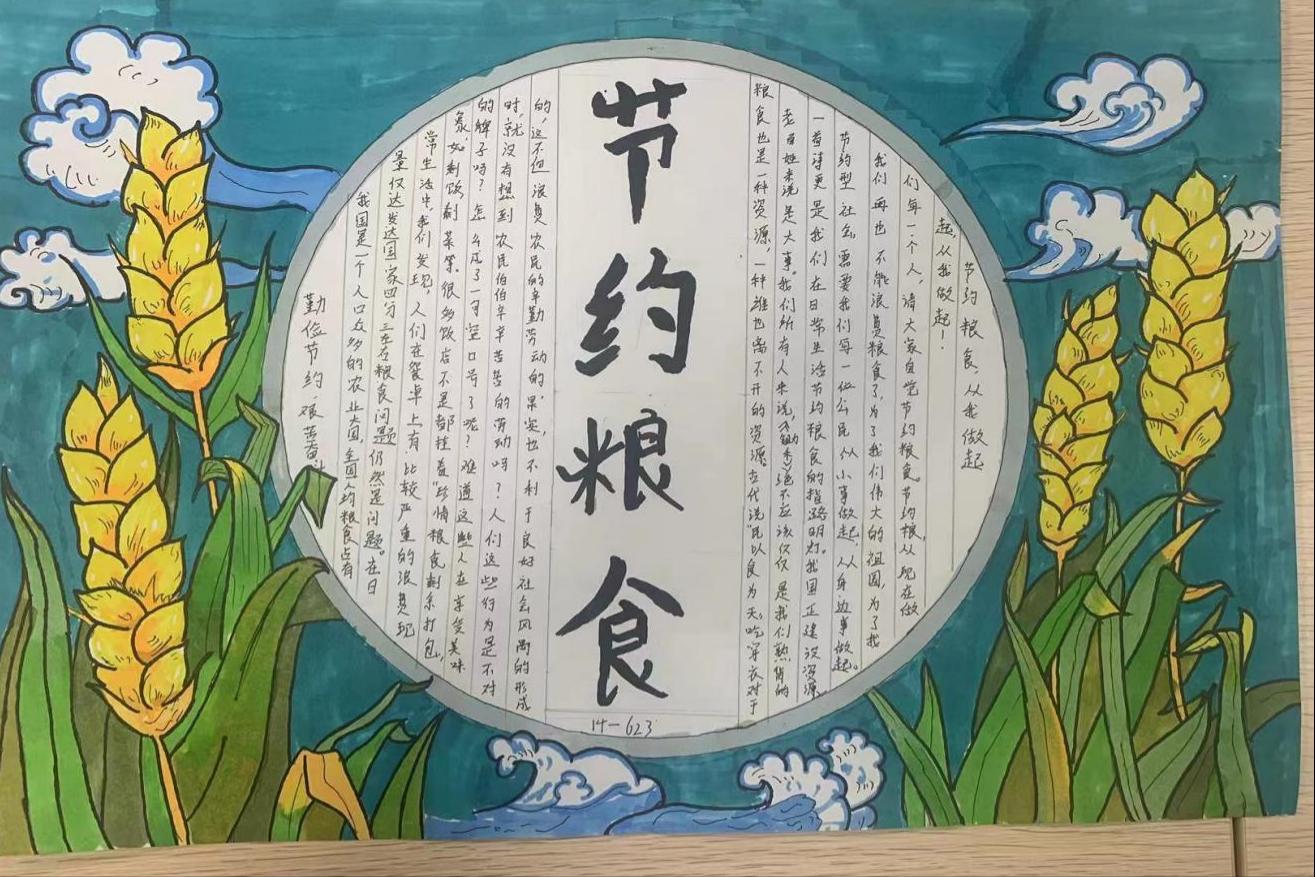 勤俭节约,艰苦奋斗
我国是一个人口众多的农业大国,全国人均粮食占有
量仅达发达国家四分三左右粮食问题仍然是问题。在日
常生活中,我们发现,人们在餐桌上有比较严重的浪费现
象,如剩饭,剩菜等。很多饭店不是都挂着“珍惜粮食剩余打包,
的牌子吗?怎么成了一句空口号了呢?难道这些人在享受美味
时,就没有想到农民伯伯辛辛苦苦的劳动吗?人们这些行为是不对
的,这不但浪费农民的辛勤劳动的果实,也不利于良好社会风尚的形成
节约粮食
14-623
粮食也是一种资源,一种谁也离不开的资源,古代说“民以食为天,”吃穿衣对于
老百姓来说是大事。我们所有人来说,《锄禾》绝不应该仅仅是我们熟背的
一首诗更是我们在日常生活节约粮食的指路明灯。我国正建设资源
节约型社会,需要我们每一位公民从小事做起,从身边事做起。
我们再也不能浪费粮食了,为了我们伟大的祖国,为了我
们每一个人,请大家自觉节约粮食。节约粮,从现在做
起,从我做起!
节约粮食,从我做起